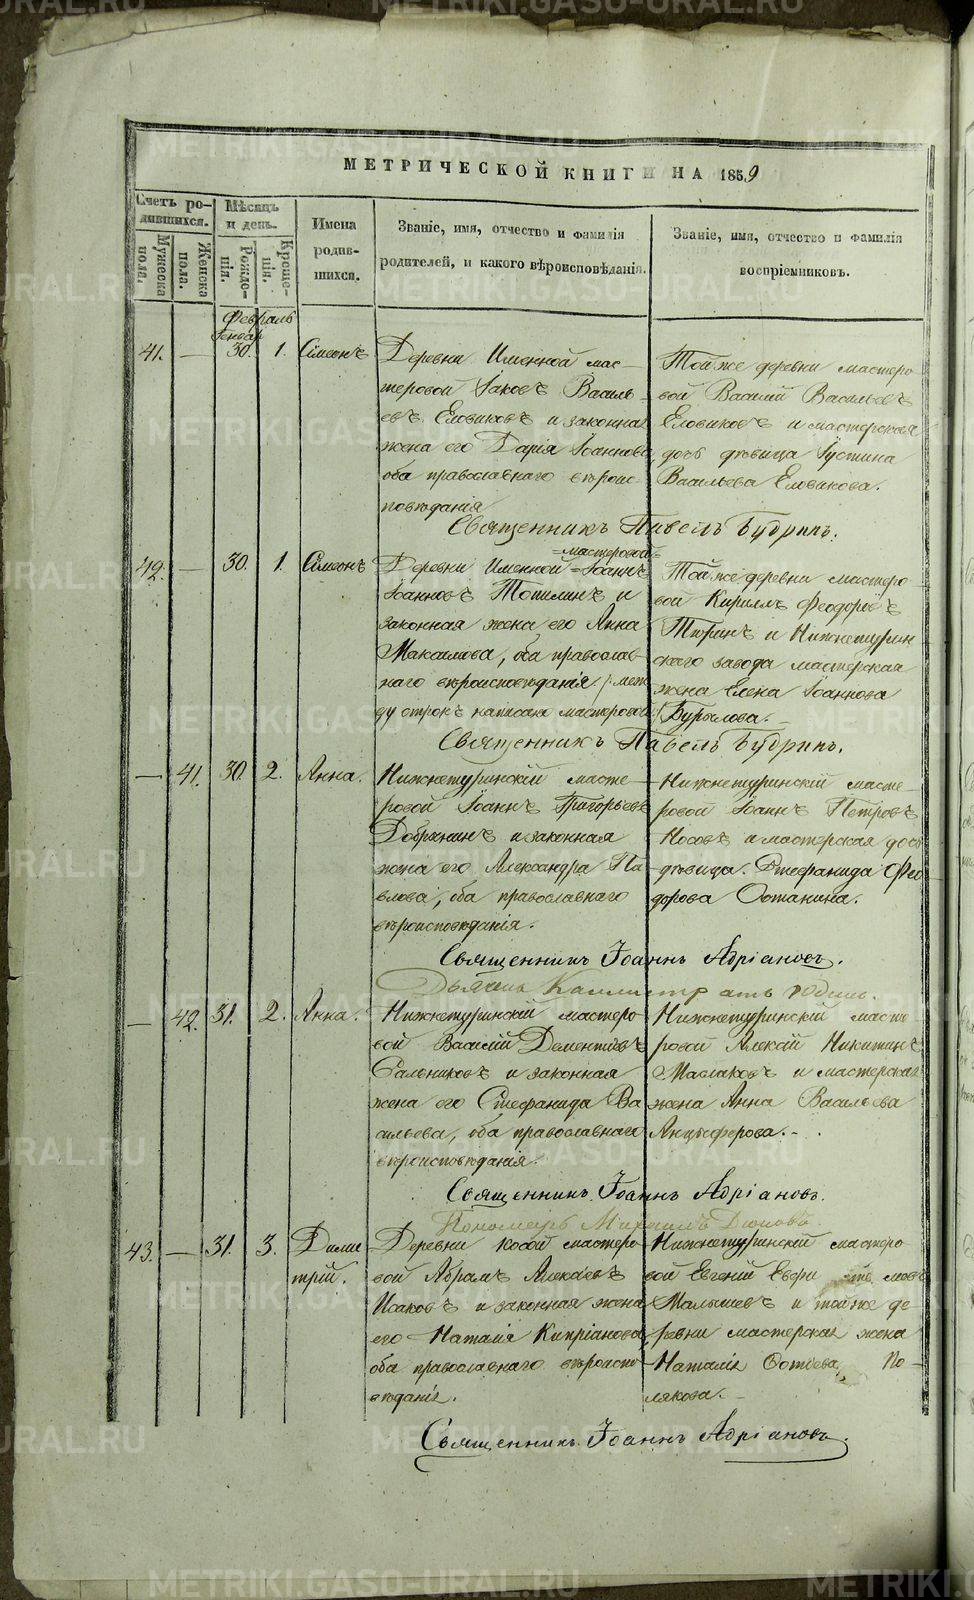 МЕТРИЧЕСКОЙ КНИГИ НА 1859
Счетъ родившихся.
Мужеска пола.
Женска пола.
Мѣсяцъ и день.
Рожденія.
Крещенія.
Имена родившихся.
Званіе, имя, отчество и фамилія родителей, и какого вѣроисповѣданія.
Званіе, имя, отчество и фамилія воспріемниковъ.
Февраль
Генвар
41. — 30. 1. Сімеонъ
Деревни Именной мас-
теровой Іаковъ Василь-
евъ Еловиковъ и законна
жена его Дарія Іоаннова
оба православнаго вѣроис-
повѣданія
Той же деревни мастеро-
вой Василій Васильевъ
Еловиковъ и мастерская
дочь дѣвица Іустина
Васильева Еловикова.
Священникъ Павелъ Будринъ.
42. — 30. 1. Сімеонъ
=мастеровой=
Деревни Именной =Іоаннъ
Іоанновъ Топилинъ и
законная жена его Анна
Максимова, оба православ-
наго вѣроисповѣданія /: меж
ду строкъ написано мастеровой
Той же деревни мастеро-
вой Кириллъ Феодоровъ
Тюринъ и Нижнетурин
скаго завода мастерская
жена Елена Іоаннова
Бурылова.
Священникъ Павелъ Будринъ.
— 41. 30. 2. Анна.
Нижнетуринскій масте-
ровой Іоаннъ Григорьевъ
Добрынинъ и законная
жена его Александра Па-
влова, оба православнаго
вѣроисповѣданія.
Нижнетуринскій масте-
ровой Іоаннъ Петровъ
Носовъ и мастерская дочь
дѣвица Стефанида Фео
дорова Останина.
Священникъ Іоаннъ Адріановъ.
Дьячекъ Каллистратъ
— 42. 31. 2. Анна.
Нижнетуринскій мастеро
вой Василій Дементіевъ
Сальниковъ и законная
жена его Стефанида Ва
сильева, оба православнаго
вѣроисповѣданія.
Нижнетуринскій масте
ровой Алексій Никитинъ
Маслаковъ и мастерская
жена Анна Васильева
Анцыферова.
Священникъ Іоаннъ Адріановъ.
Пономарь Михаилъ
43. — 31. 3. Димитрій.
Деревни Косой мастеро-
вой Абрамъ Алексѣевъ
Исаковъ и законная жена
его Наталія Кипріанова,
оба православнаго вѣроиспо
вѣданія.
Нижнетуринскій мастеро
вой Евгеній
Малышевъ и той же де-
ревни мастерская жена
Наталія По-
лякова.
Священникъ Іоаннъ Адріановъ.
METRIKI.GASO-URAL.RU